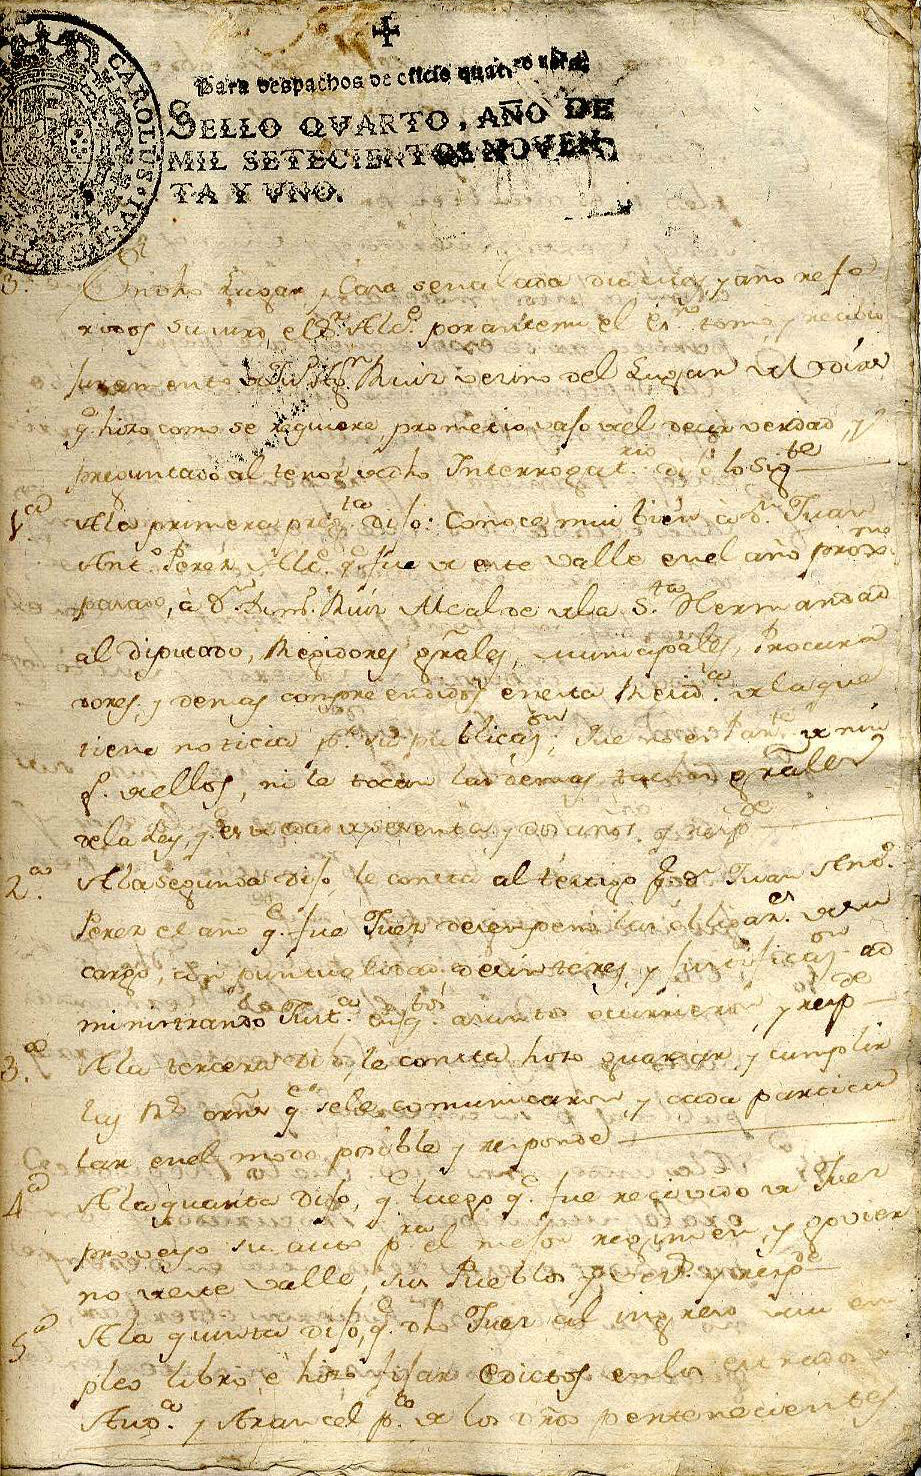 CAROLUS IV D G
Para despachos de oficio quatro mrs.
SELLO QVARTO, AÑO DE
MIL SETECIENTOS NOVEN
TA Y VNO.
En dho Lugar y Casa senalada dia mes y año refe
ridos su mrd el Sr. Alce. por ante mi el Esno. tomo, y recibio
juramento Ruiz vecino del Lugar
q. hizo como se requiere prometio vajo del decir verdad, y
preguntado al tenor de dho Interrogatrio. dijo lo sigte
1ª
A la primera pregta. Dijo: Conoce mui bien à Dn. Juan
Anto. Perez Alce. q. fue de este Valle en el año proxmo
pasado, à Dn. Ruiz Alcalde de la Sta. Hermandad
al Diputado, Regidores grales, municipales, Procura
dores, y demas comprendidos en esta Residca. de la que
tiene noticia pr. su publicaon; que no es de nin
g. de ellos, ni le tocan las demas grales
de la Ley, y es de edad de y dos años y respde
2ª.
A la segunda Dijo le consta al testigo q. Dn. Juan Anto.
Perez el año q. fue Juez desempeño las obligaes. de su
cargo, con puntualidad desinteres, y justificaon ad
ministrando Justa. en qtos. asuntos ocurrieron, y respde
3ª.
A la tercera Dijo, le consta hizo guardar y cumplir
las Rs. ornes q. se le comunicaron y cada particu
lar en el modo posible y responde
4ª
A la quarta Dijo, q. luego q. fue recivido de Juez
proveyo su auto pra. el mejor regimen, y govier
no de este Valle, sus Pueblos, y respde
5ª
A la quinta Dijo, q. dho Juez al ingreso de su em
pleo libro, è hizo fijar Edictos en los estrados de
Auda. y Arancel de los dros pertenecientes